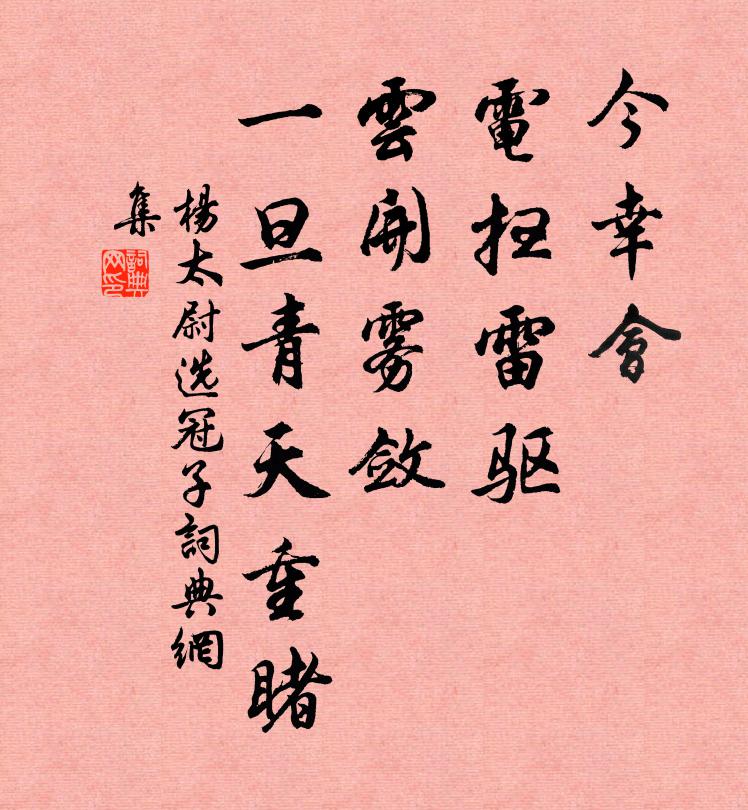 今幸會
電扫雷驱
雲開雾斂
一旦青天重睹
楊太尉选冠子詞典網
集
詞典
网印